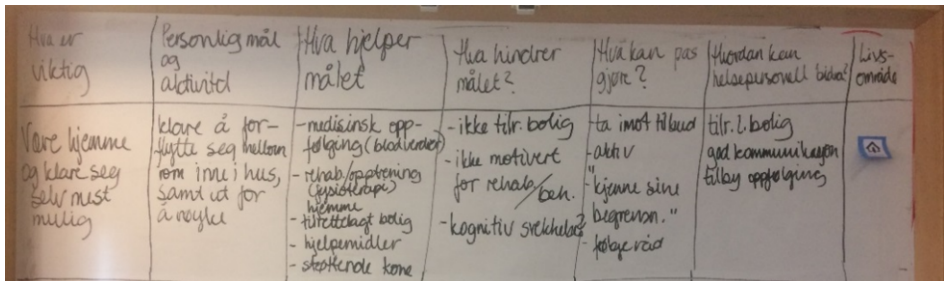 Hva er
viktig
Personlig mål
og
aktivitet
Hva hjelper
målet
Hva hindrer
målet?
Hva kan pas
gjøre?
Hvordan kan
helsepersonell bidra?
Livs-
område
Være hjemme
og klare seg
selv mest
mulig
klare å for-
flytte seg mellom
rom inne i hus,
samt ut for
å røyke
- medisinsk opp-
følging (blodverdier)
- rehab/opptrening
(fysioterapi)
hjemme
- tilrettelagt bolig
- hjelpemidler
- støttende kone
- ikke tilr. bolig
- ikke motivert
for rehab/beh.
- kognitiv svekkelse?
- ta imot tilbud
- aktiv
- "kjenne sine
begrensn."
- følge råd
tilr. l. bolig
god kommunikasjon
tilby oppfølging